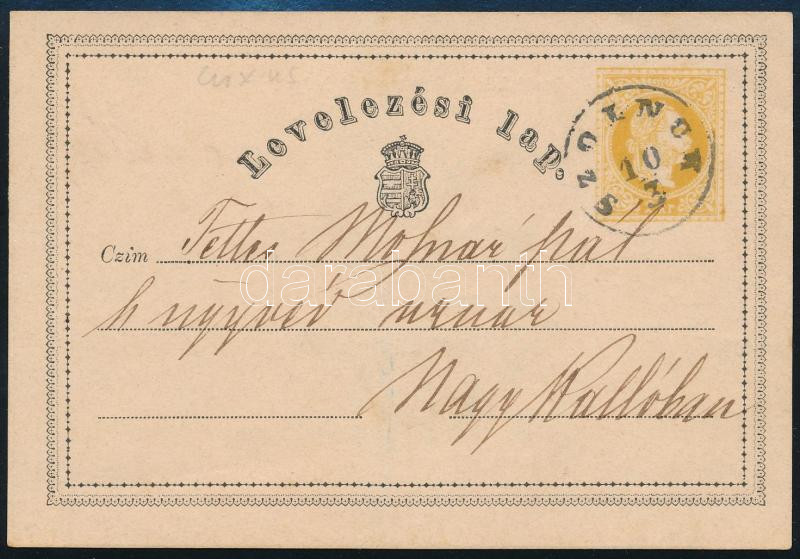 Levelezési lap.
SZOLNOK
10
3
Czim Tettes Molnár pál
h ügyvéd urnak
Nagy Kallóban
darabanth